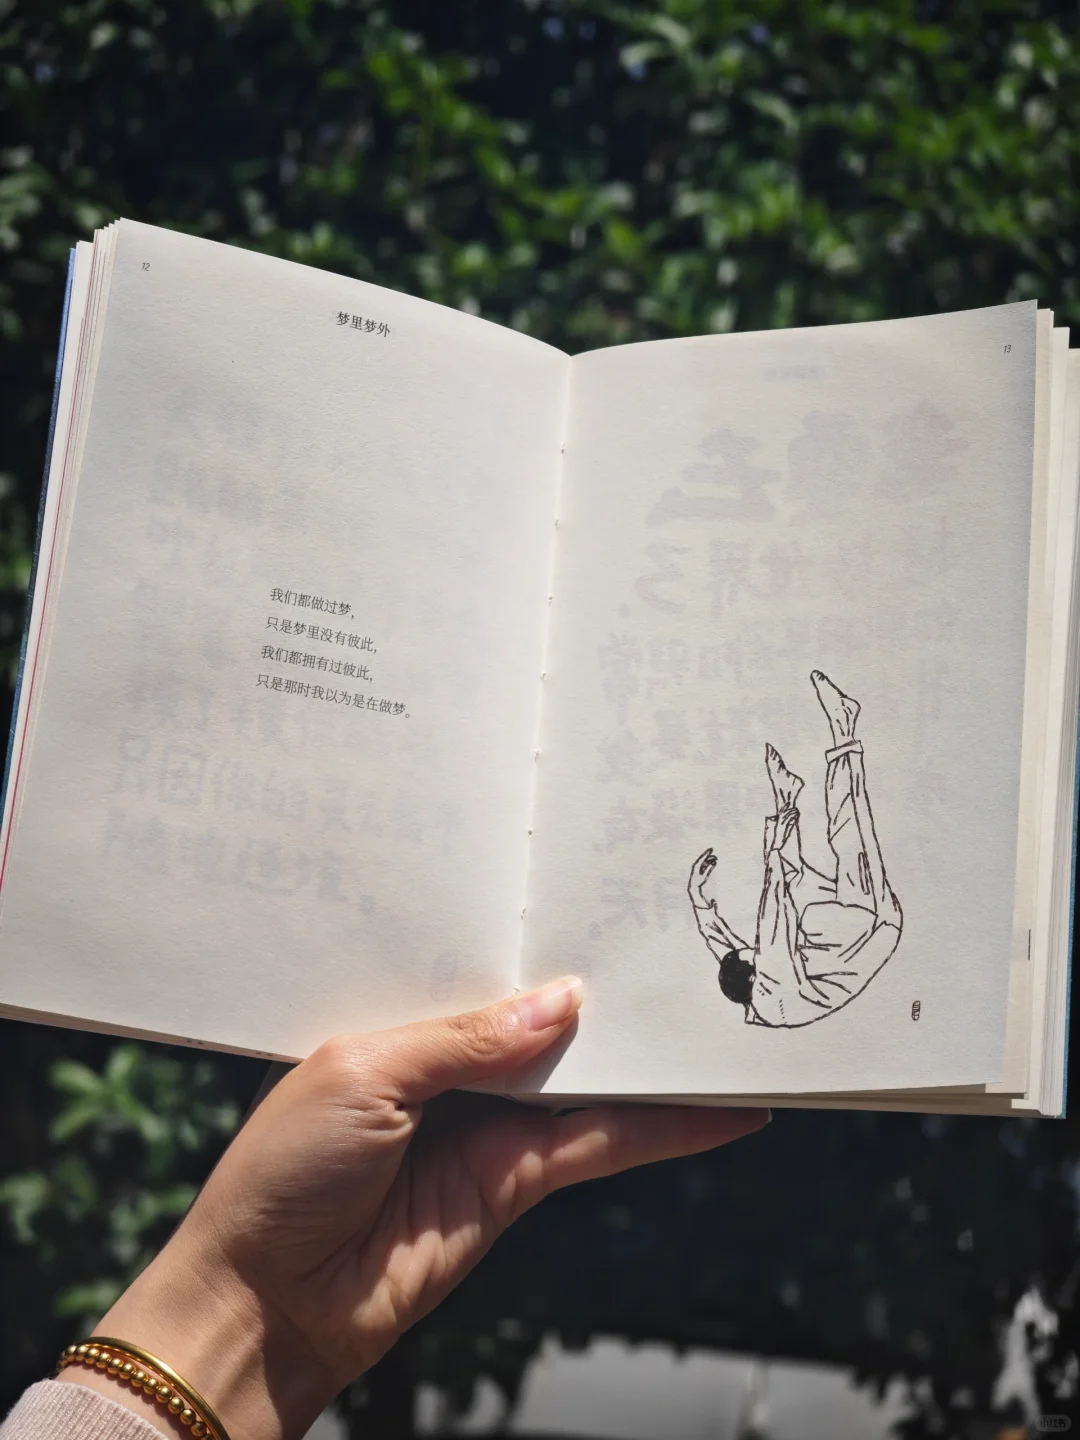 12
梦里梦外
我们都做过梦，
只是梦里没有彼此，
我们都拥有过彼此，
只是那时我以为是在做梦。
13
小红书